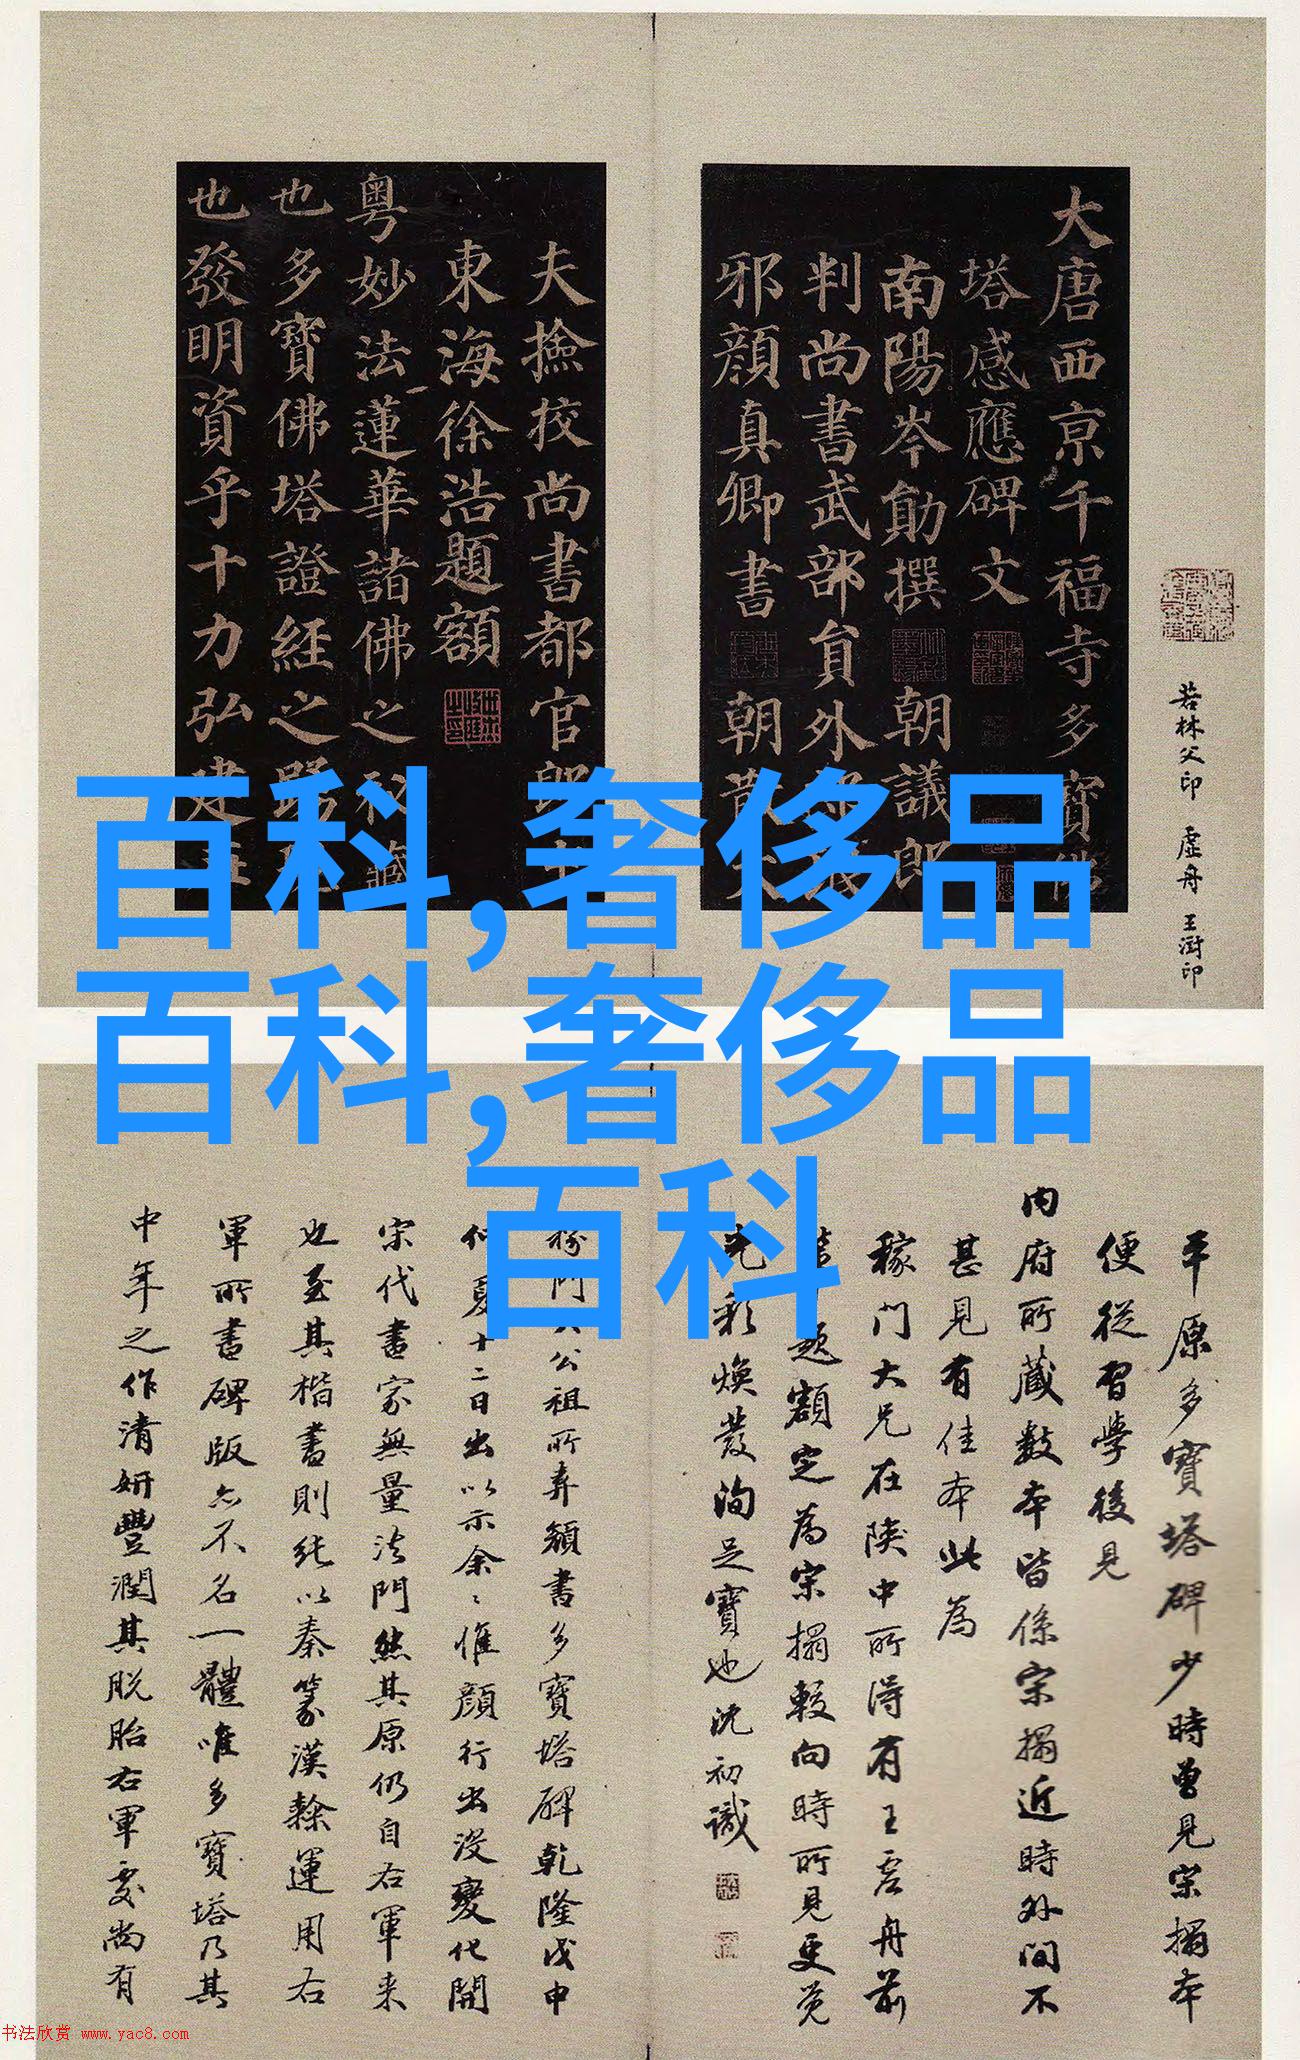 大唐西京千福寺多寶佛
塔感應碑文
南陽岑勛撰 朝議郎
判尚書武部員外郎
邪顏真卿書 朝散大
夫撿挍尚書都官郎
東海徐浩題額
粵妙法蓮華諸佛之秘
也多寶佛塔證經之
也發明資乎十力弘建
若林父印 虛舟 王澍印
百科,奢侈品
百科,奢侈品
百科
平原多寶塔碑少時曾見宋搨本
便從習學後見
內府所藏數本皆係宋搨近時外間不
甚見有佳本此為
稼門大兄在陝中所得有王虛舟前
題額定為宋搨較向時所見更覺
光彩煥發洵足寶也沈初識
公祖所弆顏書多寶塔碑乾隆戊申
夏十二日出以示余惟顏行出沒變化開
宋代書家無量法門然其原仍自右軍來
也至其楷書則純以秦篆漢隸運用右
軍所書碑版亦不名一體唯多寶塔乃其
中年之作清妍豐潤其脫胎右軍處尚有
书法欣赏 www.yac8.com